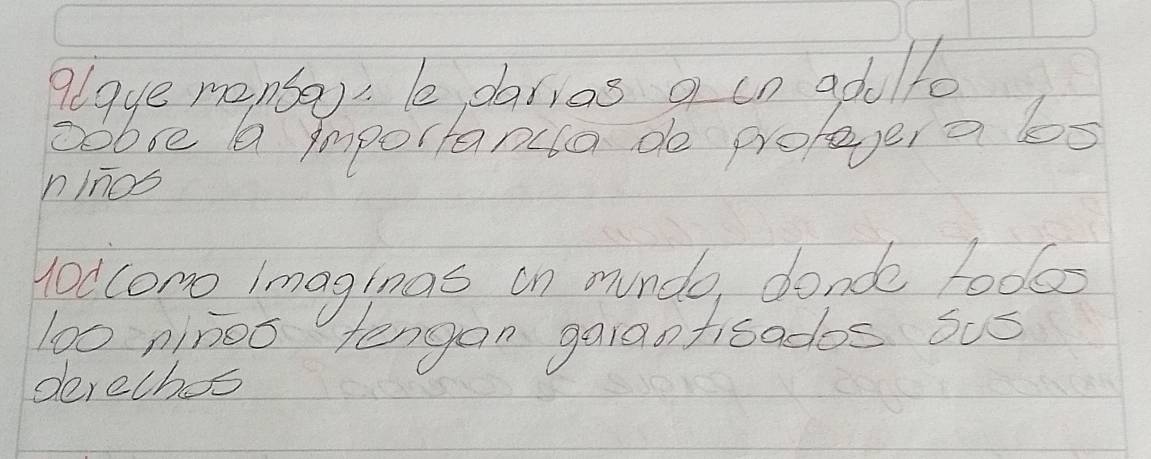 9¿que mensaje le darias a un adulto
sobre la importancia de proteger a los
niños
10¿como imaginas un mundo, donde todos
los niños tengan garantisados sus
derechos